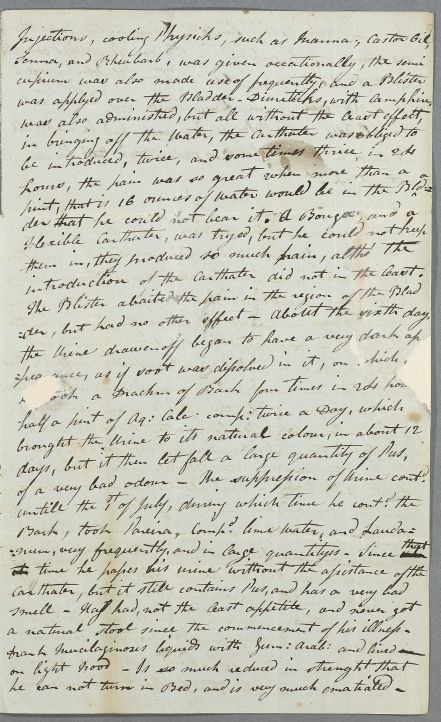 Injections, cooling Physicks, such as Manna, Castor Oil,
Senna, and Rheubarb, was given occationally, the semi
cupium was also made use of frequently, and a Blister
was applyed over the Bladder - Diureticks, with Camphire,
was also administred, but all without the least effect
in bringing off the Water, the Carthater was obliged to
be introduced, twice, and sometimes thrice in 24
hours, the pain was so great when more than a
pint, that is 16 ounces of Water would be in the Blad-
der that he could not bear it. A Bougee, and a
Flexible Carthater, was tryed, but he could not keep
them in, they produced so much pain, altho the
introduction of the Carthater did not in the least.
The Blister abaited the pain in the region of the Blad
:der, but had no other effect - about the sixth day,
the Urine drawen off began to have a very dark ap
:pearance, as if soot was disolved in it, on which,
took a Drachm of Bark four times in 24 hou
half a pint of Aq: Calc: comp: twice a Day, which
brought the Urine to its natural colour, in about 12
days, but it then let fall a large quantity of Pus,
of a very bad odour - The suppression of Urine cont.d
untill the of July, during which time he cont.d the
Bark, took Pareira, Comp.d lime Water, and Lauda=
:num, very frequently, and in large quantitys - Since that
time he passes his urine without the assistance of the
Carthater, but it still contains Pus, and has a very bad
smell - Has had, not the least appetite, and never got
a natural stool since the commencement of his illness -
Drank Mucilaginoses liquids with Gum: Arab: and lived
on light Food - Is so much reduced in strenght that
he can not turn in Bed, and is very much ematiated -